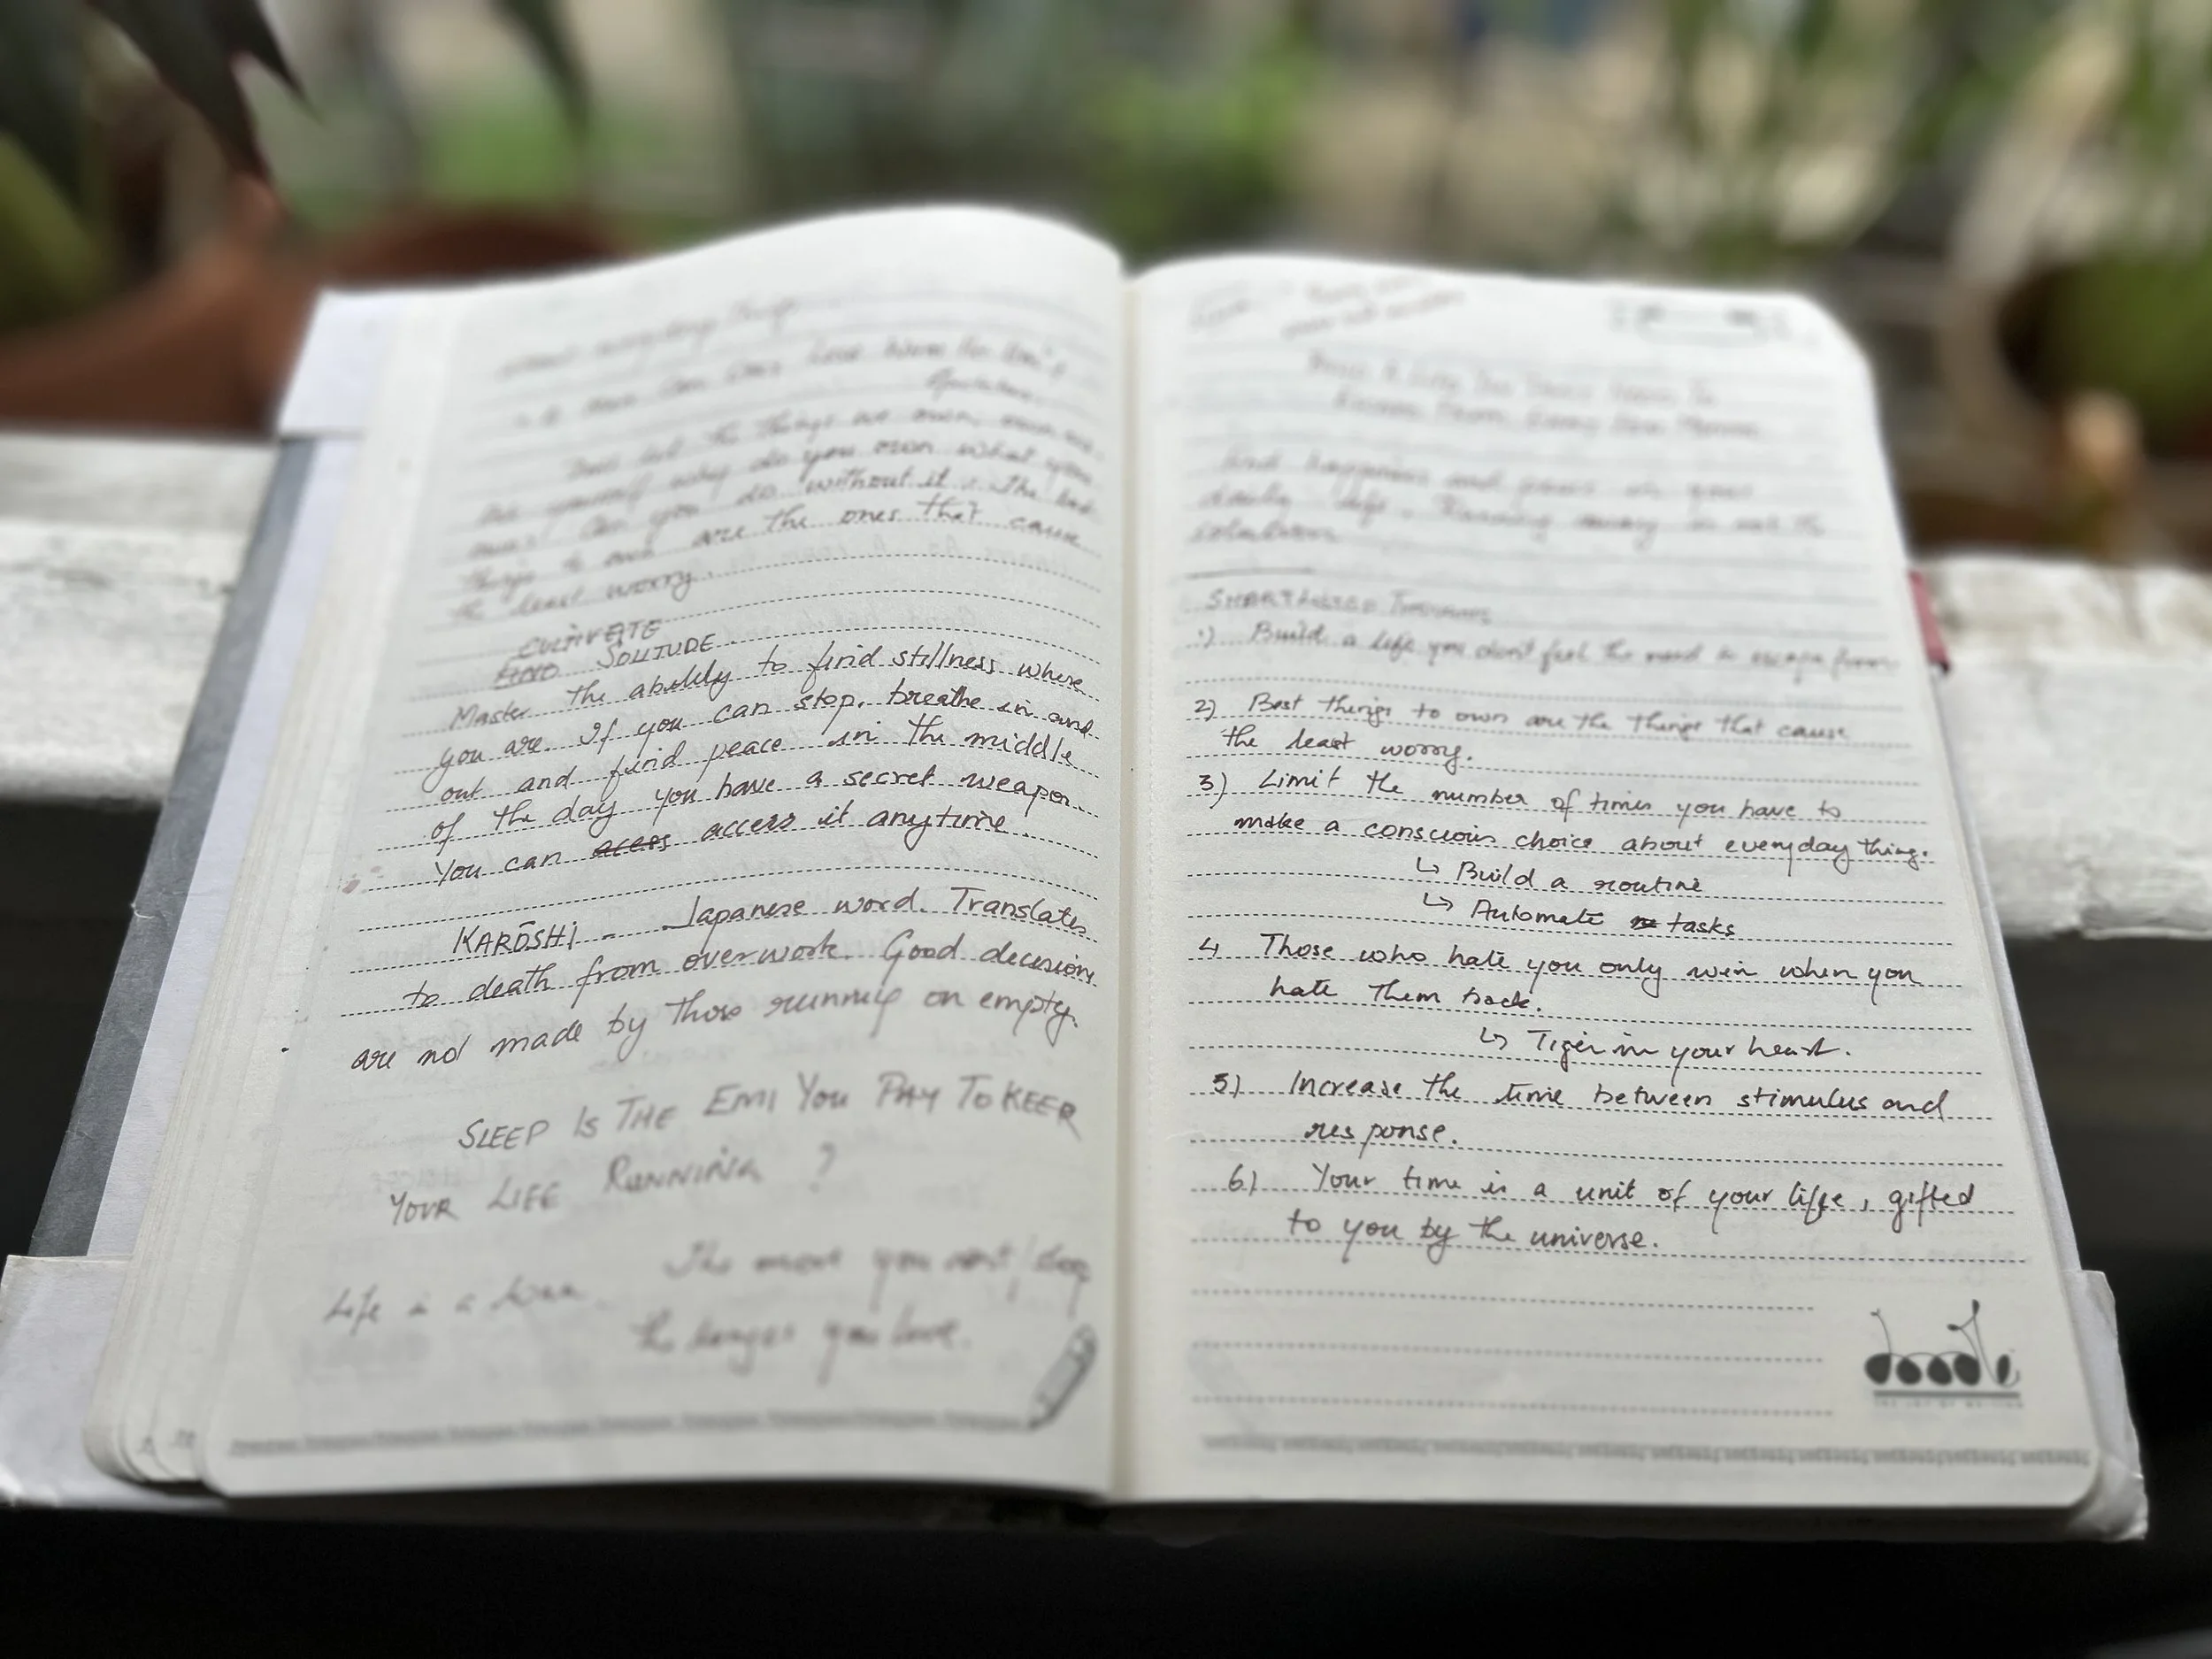 the things we own, own us.
Ask yourself why do you own what you
own? Can you do without it. The best
things to own are the ones that cause
the least worry.
CULTIVATE
FIND SOLITUDE
Master the ability to find stillness where
you are. If you can stop, breathe in and
out and find peace in the middle
of the day you have a secret weapon.
You can acess access it anytime.
KARŌSHI - Japanese word. Translates
to death from overwork. Good decisions
are not made by those running on empty.
SLEEP IS THE EMI YOU PAY TO KEEP
YOUR LIFE RUNNING ?
Life is a
The more you
the longer you
Build A Life You Don't Need To
Escape From
find happiness and peace in your
daily life. Running away is not the
solution
1) Build a life you don't feel the need to escape from
2) Best things to own are the things that cause
the least worry.
3) Limit the number of times you have to
make a conscious choice about everyday things.
↳ Build a routine
↳ Automate tasks
4 Those who hate you only win when you
hate them back.
↳ Tiger in your heart.
5) Increase the time between stimulus and
response.
6) Your time is a unit of your life, gifted
to you by the universe.
doodle
THE JOY OF WRITING